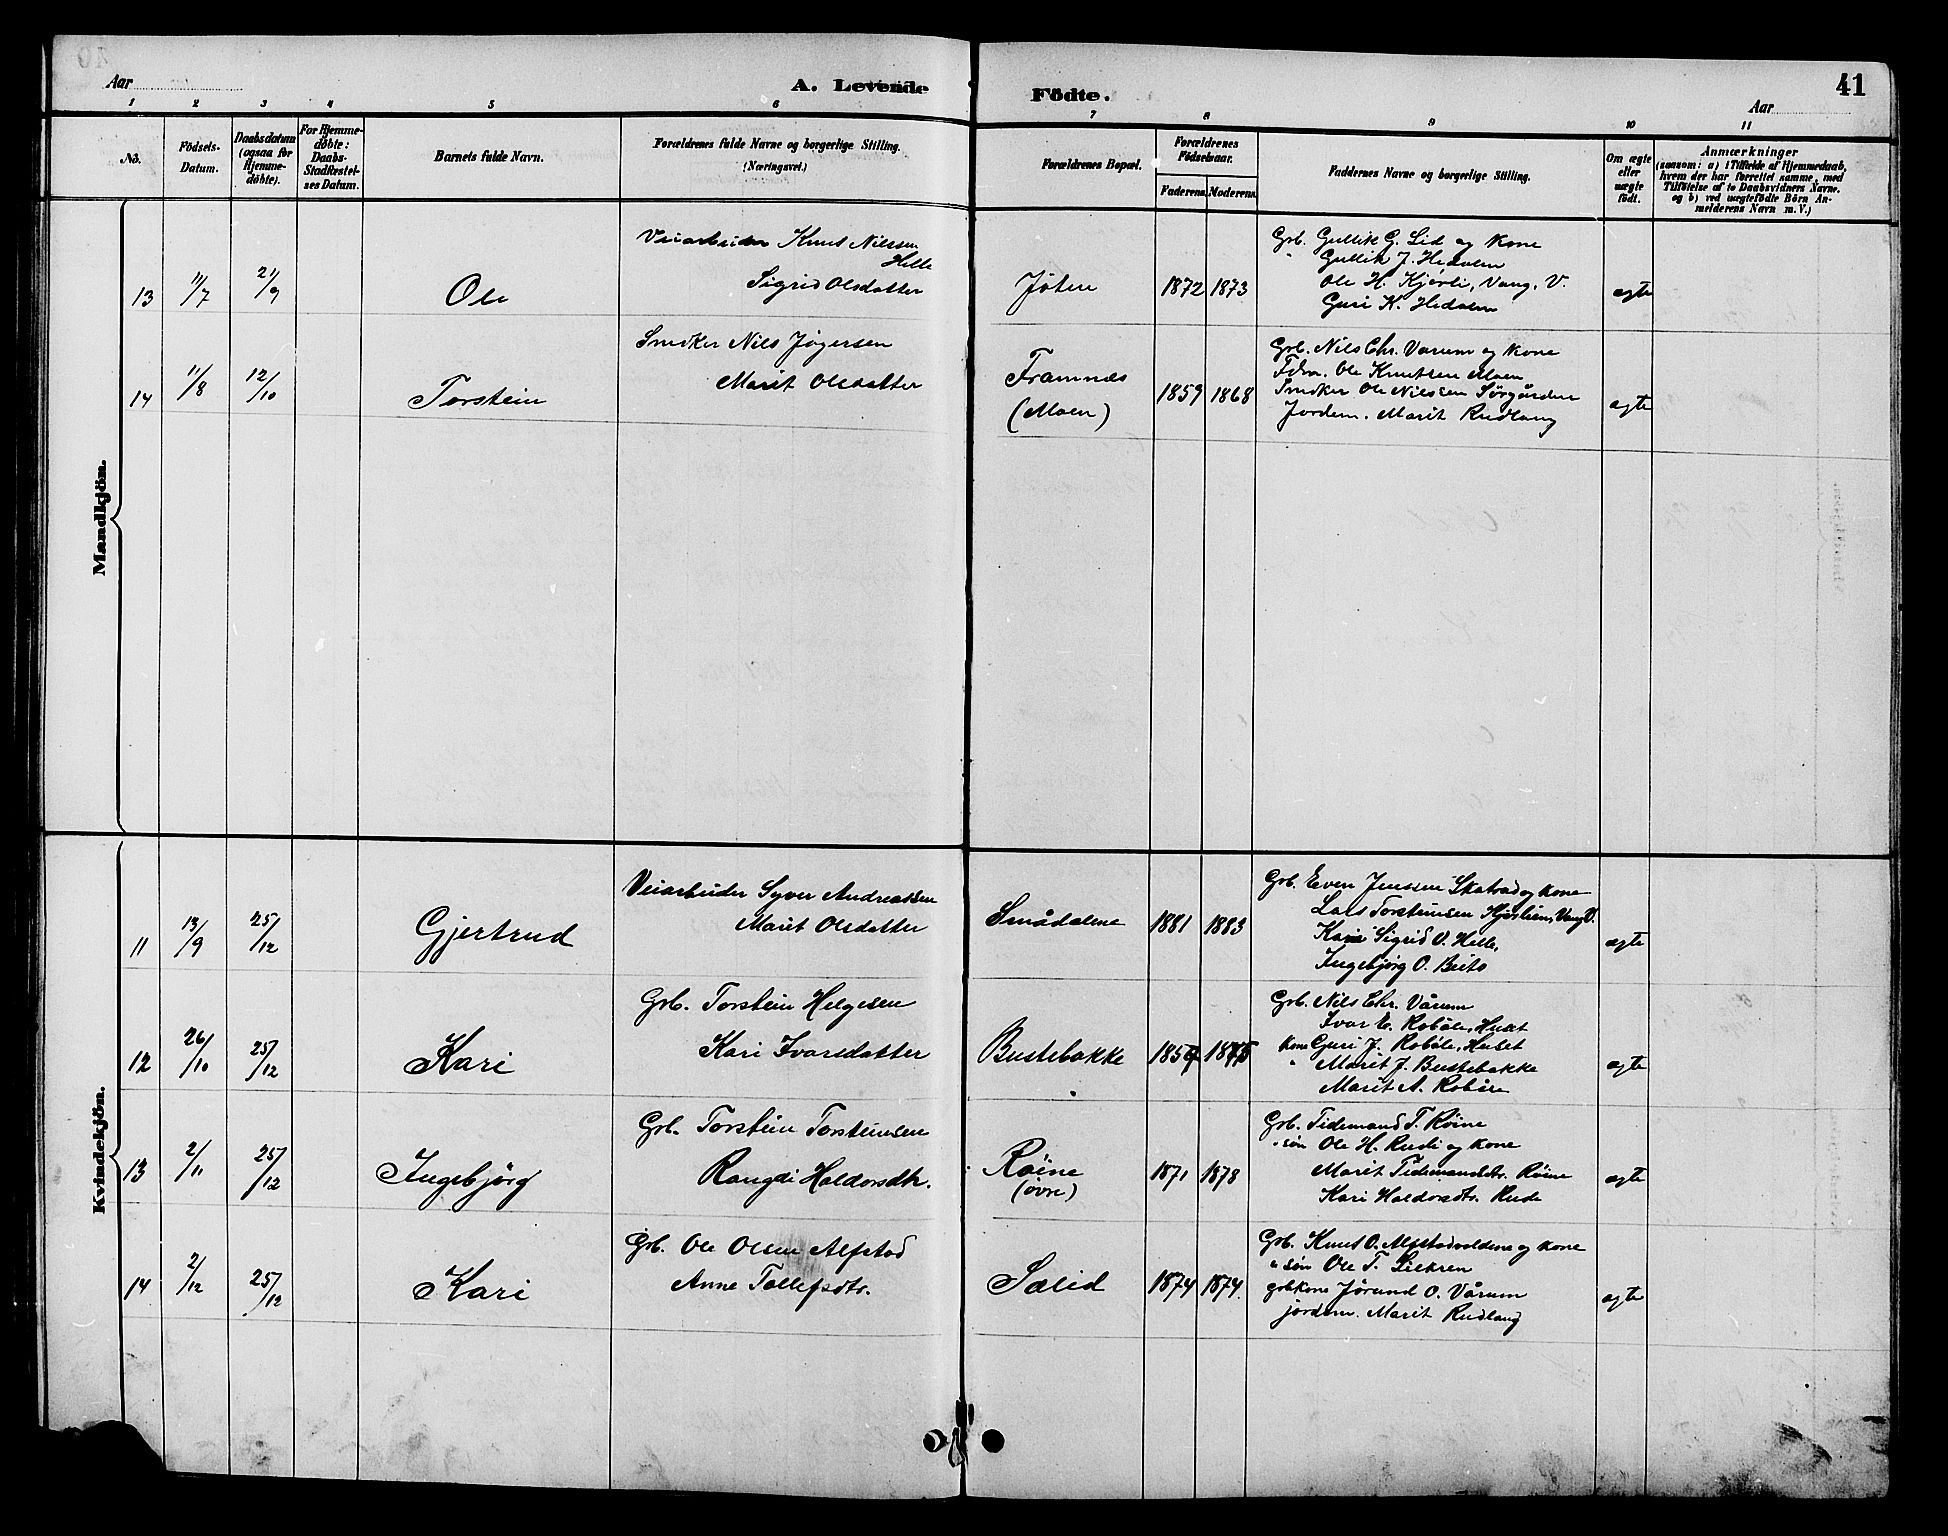 Aar
A. Levende Födte.
Aar
41
1 2 3 4 5 6 7 8 9 10 11
No.
Födsels-Datum.
Daabsdatum (ogsaa for Hjemme-döbte).
For Hjemme-döbte: Daabs-Stadfæstel-ses Datum.
Barnets fulde Navn.
Forældrenes fulde Navne og borgerlige Stilling.
(Næringsvei.)
Forældrenes Bopæl.
Forældrenes Födselsaar.
Faderens. Moderens.
Faddernes Navne og borgerlige Stilling.
Om ægte eller uægte födt.
Anmærkninger
(saasom: a) i Tilfælde af Hjemmedaab,
hvem der har forrettet samme, med
Tilföielse af to Daabsvidners Navne.
og b) ved uægtefödte Börn An-
melderens Navn m. V.)
Mandkjön.
13 11/7 21/9 Ole
Veiarbeider Knut Nilssen
Helle
Sigrid Olsdatter
Jøten 1872 1873
Grb. Gullik G. Lid og Kone
" Gullik J. Hedalen
Ole H. Kjørli, Vang, V.
Guri K. Hedalen
ægte
14 11/8 12/10 Torstein
Snedker Nils Jøgersen
Marit Olsdatter
Framnæs
(Moen)
1859 1868
Grb. Nils Chr. Varum og Kone
Fdrm. Ole Knutsen Moen
Snedker Ole Nilssen Sørgården
Jordem. Marit Rudlang
ægte
Kvindekjön.
11 13/9 25/12 Gjertrud
Veiarbeider Syver Andreassen
Marit Olsdatter
Smådalene 1881 1883
Grb. Even Jenssen Skatrud og Kone
Lars Torsteinsen Kjørlien, Vang V.
Kari Sigrid O. Helle,
Ingebjørg O. Beito
ægte
12 26/10 25/12 Kari
Grb. Torstein Helgesen
Kari Ivarsdatter
Bustebakke 1859 1875
Grb. Nils Chr. Vårum
Ivar E. Robøle, Huset
Kone Guri J. Robøle, Huset
" Marit J. Bustebakke
Marit A. Robøle
ægte
13 2/11 25/12 Ingebjørg
Grb. Torstein Torsteinsen
Rangdi Haldorsdtr.
Røine
(øvre)
1871 1878
Grb. Tidemand T. Røine
" søn Ole H. Rudi og Kone
Marit Tidemandsdtr. Røine
Kari Haldorsdtr. Rude
ægte
14 2/12 25/12 Kari
Grb. Ole Olsen Alfstad
Anne Tollefsdtr.
Sælid 1874 1874.
Grb. Knut O. Alfstadvoldene og Kone
" søn Ole T. Liekren
grbkone Jørund O. Vårum
jordem. Marit Rudlang
ægte